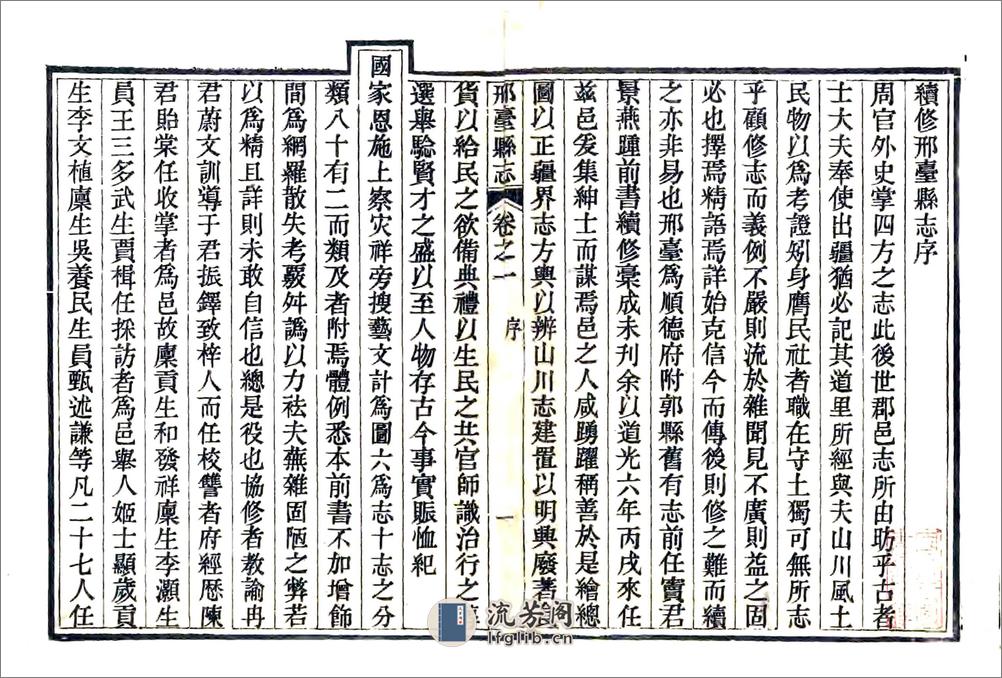 續修邢臺縣志序
周官外史掌四方之志此後世郡邑志所由昉乎古者
士大夫奉使出疆猶必記其道里所經與夫山川風土
民物以爲考證矧身膺民社者職在守土獨可無所志
乎顧修志而義例不嚴則流於雜聞見不廣則益之固
必也擇焉精語焉詳始克信今而傳後則修之難而續
之亦非易也邢臺爲順德府附郭縣舊有志前任竇君
景燕踵前書續修稾成未刋余以道光六年丙戌來任
兹邑爰集紳士而謀焉邑之人咸踴躍稱善於是繪總
圖以正疆界志方輿以辨山川志建置以明興廢著
邢臺縣志 卷之一 序 一
貨以給民之欲備典禮以生民之共官師識治行之
選舉騐賢才之盛以至人物存古今事實賑恤紀
國家恩施上察灾祥旁搜藝文計爲圖六爲志十志之分
類八十有二而類及者附焉體例悉本前書不加增飾
間爲網羅散失考覈舛譌以力袪夫蕪雜固陋之弊若
以爲精且詳則未敢自信也總是役也協修者教諭冉
君蔚文訓導于君振鐸致梓人而任校讐者府經歷陳
君貽棠任收掌者爲邑故廩貢生和發祥廩生李灝生
員王三多武生賈楫任採訪者爲邑舉人姬士顯歲貢
生李文植廩生吳養民生員甄述謙等凡二十七人任
流芳阁
lfglib.cn